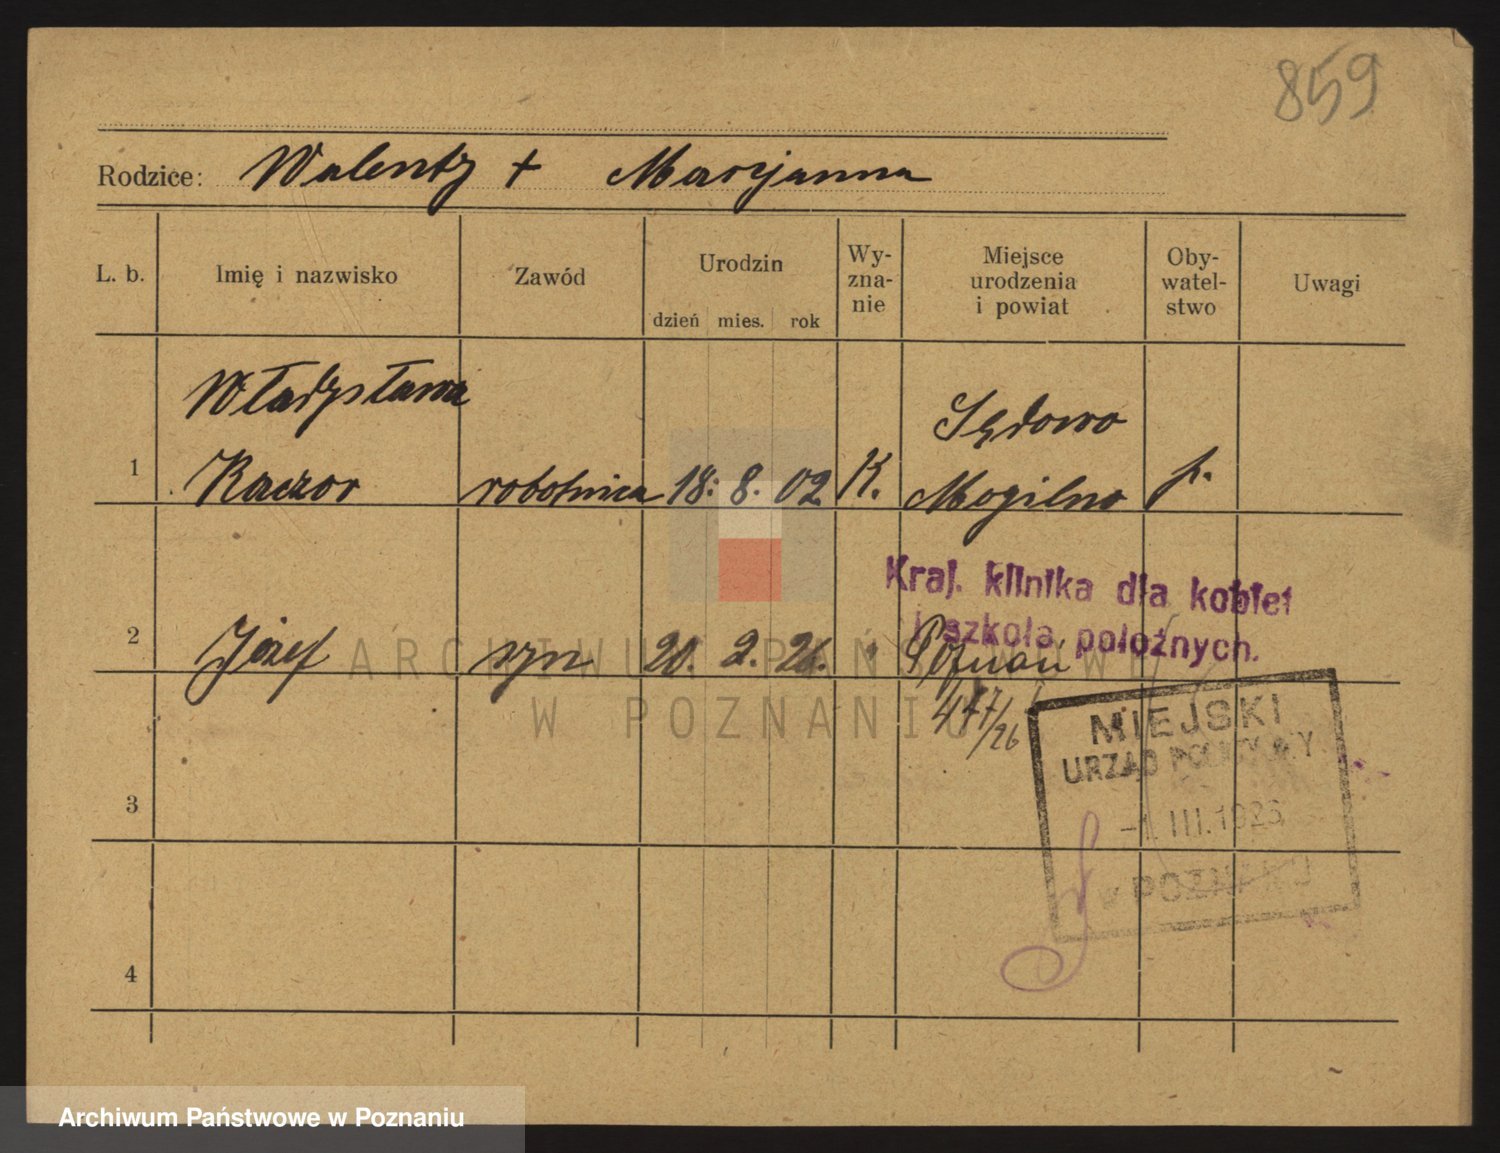 859
Rodzice: Walenty + Marijanna
L. b. Imię i nazwisko Zawód Urodzin Wy- Miejsce Oby- Uwagi
zna- urodzenia watel-
nie i powiat stwo
dzień mies. rok
Władysława Sędowo
1 Kaczor robotnica 18. 8. 02 K. Mogilno p.
Kraj. klinika dla kobiet
i szkoła położnych.
2 Józef syn 20. 2. 26. Poznań
477/26
MIEJSKI
URZĄD POLICYJNY
-1. III. 1926
W POZNANIU
3
4
ARCHIWUM PAŃSTWOWE
W POZNANIU
Archiwum Państwowe w Poznaniu